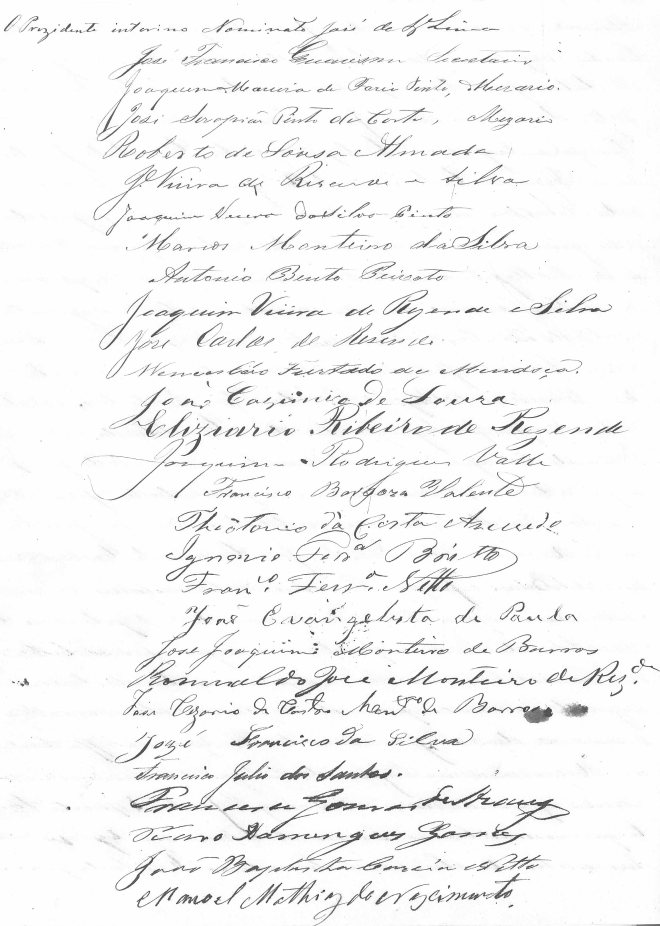 O Prezidente interino Nominato José de Sz.ª Lima
José Francisco Secretario
Joaquim Moreira de Faria Pinto, Mezario.
José Serapião Pinto da Costa, Mezario
Roberto de Sousa Almada
J.e Vieira de Rezende e Silva
Joaquim Vieira da Silva Pinto
Marcos Monteiro da Silva
Antonio Bento Peixoto
Joaquim Vieira de Rezende e Silva
José Carlos de Resende
Wencesláo Furtado de Mendoça.
João de Souza
Eliziario Ribeiro de Resende
Joaquim Rodrigues Valle
Francisco Barboza Valente
Theotonio da Costa Azevedo
Ignacio Ferr.ª
Fran.co Ferr.ª Netto
João Evangelista de Paula
José Joaquim Monteiro de Barros
Romualdo José Monteiro de Rez.de
Cezario de Mont.ro de Barros
Jozé Francisco da Silva
Francisco Julio dos Santos.
Francisco Gomes de
Domingues Gomes
João Baptista Garcia Netto
Manoel Mathias do Nascimento